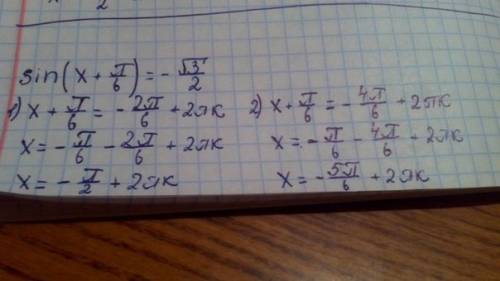 sin(x + π/6) = - √3/2
1) x + π/6 = - 2π/6 + 2πк
x = - π/6 - 2π/6 + 2πк
x = - π/2 + 2πк
2) x + π/6 = - 4π/6 + 2πк
x = - π/6 - 4π/6 + 2πк
x = - 5π/6 + 2πк